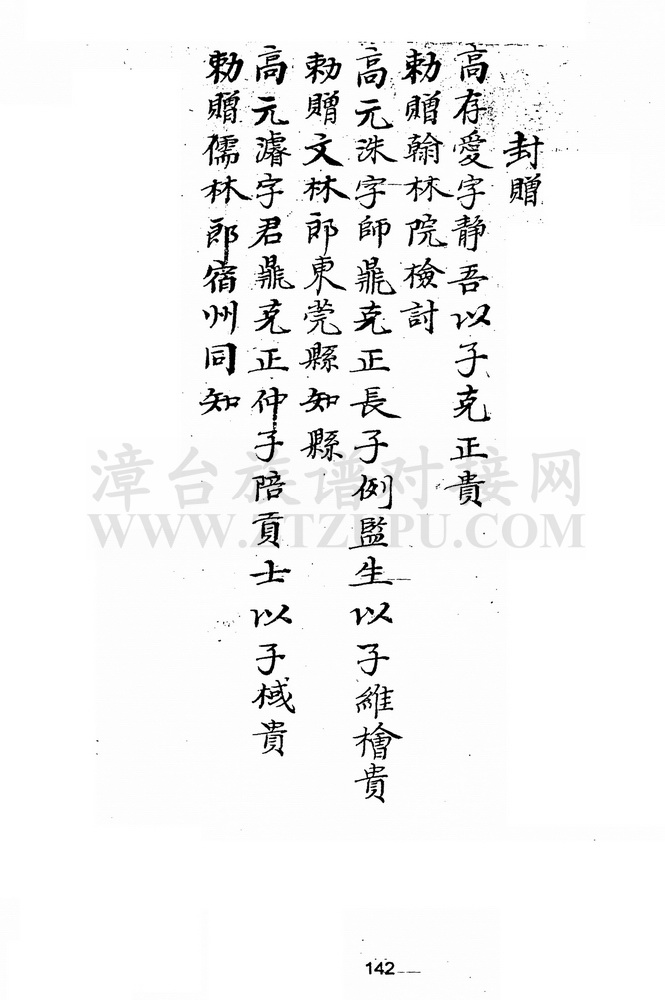 封贈
高存愛字靜吾以子克正貴
勅贈翰林院檢討
高元洙字師鼎克正長子例監生以子維檜貴
勅贈文林郎東莞縣知縣
高元濬字君鼎克正仲子陪貢士以子棫貴
勅贈儒林郎宿州同知
漳台族谱对接网
WWW.ZTZUPU.COM
142